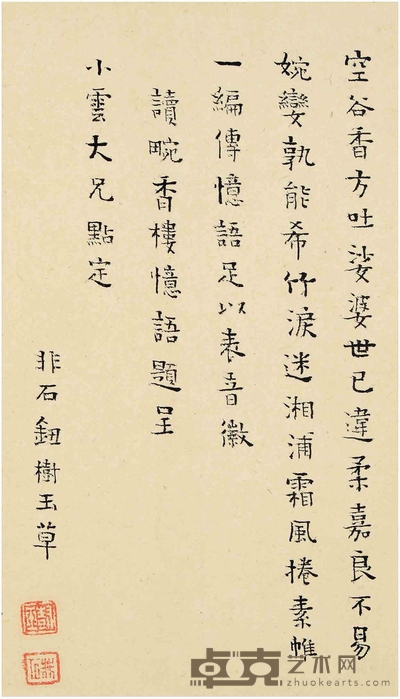 空谷香方吐娑婆世已違柔嘉良不易
婉孌孰能希竹淚迷湘浦霜風捲素帷
一編傳憶語足以表音徽
讀畹香樓憶語題呈
小雲大兄點定
非石鈕樹玉草
卓克艺术网
www.zhuokearts.com